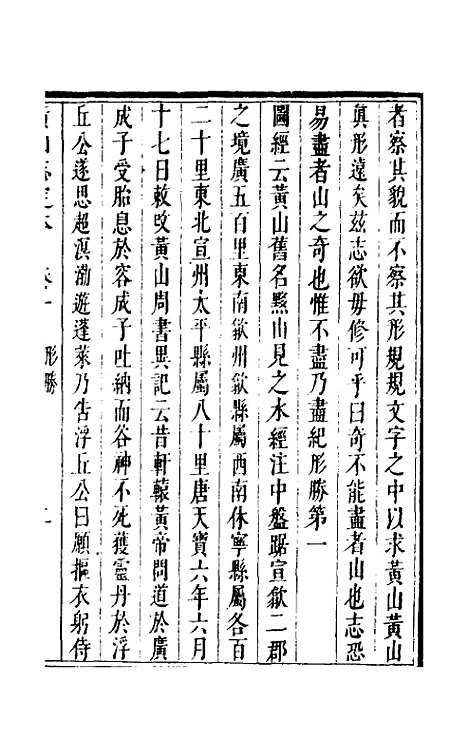 者察其貌而不察其形規規文字之中以求黃山黃山
眞形遠矣茲志欲毋修可乎曰奇不能盡者山也志恐
易盡者山之奇也惟不盡乃盡紀形勝第一
圖經云黃山舊名黟山見之水經注中盤踞宣歙二郡
之境廣五百里東南歙州歙縣屬西南休寧縣屬各百
二十里東北宣州太平縣屬八十里唐天寶六年六月
十七日敕改黃山周書異記云昔軒轅黃帝問道於廣
成子受胎息於容成子吐納而谷神不死獲靈丹於浮
丘公遂思超溟渤遊蓬萊乃告浮丘公曰願摳衣躬侍
黃山志定本 卷一 形勝 二